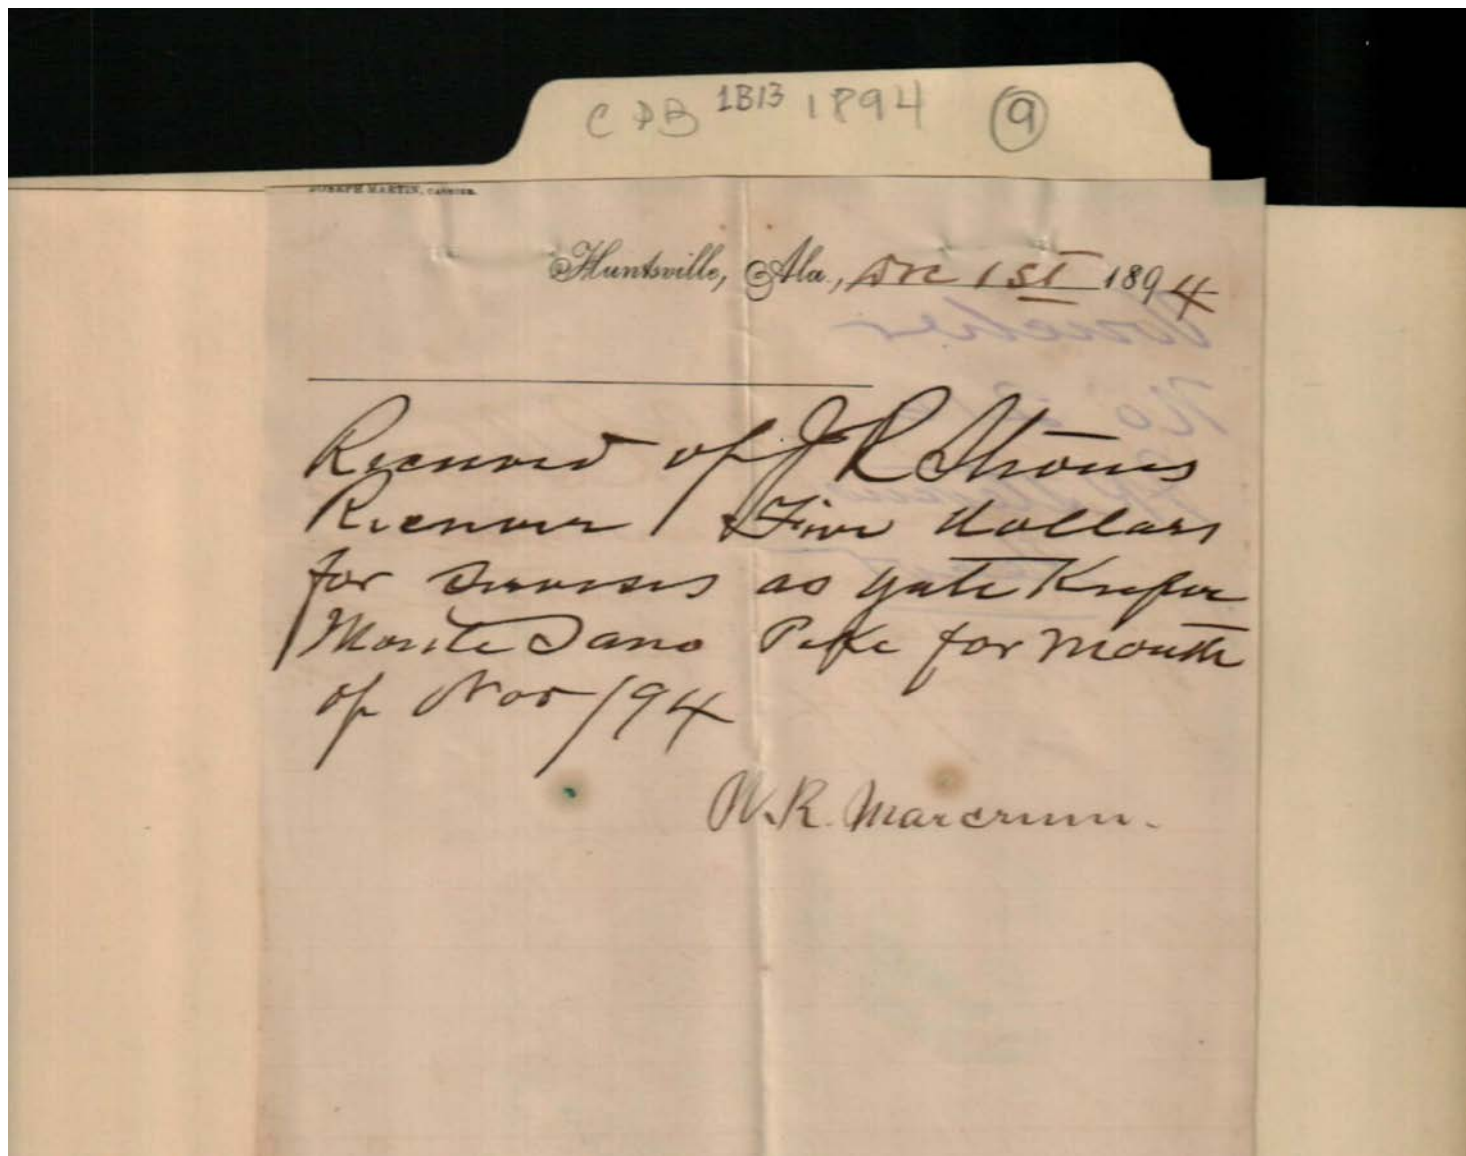 CDB 1B13 1894 9
JOSEPH MARTIN, CASHIER.
Huntsville, Ala., Dec 1st 1894
Voucher
No
Received of J R Stevens
Receiver Five Dollars
for services as gate Keeper
Monte Sano Pike for month
of Nov /94
W. R. Marcrum.